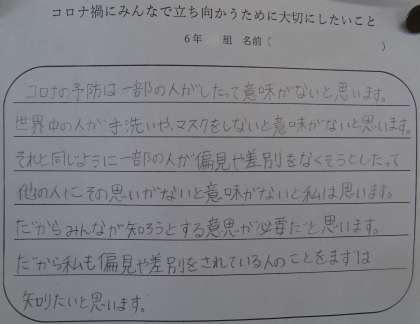 コロナ禍にみんなで立ち向かうために大切にしたいこと
6年　組　名前(　　　)
コロナの予防は一部の人がしたって意味がないと思います。
世界中の人が手洗いや、マスクをしないと意味がないと思います。
それと同じように一部の人が偏見や差別をなくそうとしたって
他の人にその思いがないと意味がないと私は思います。
だからみんなが知ろうとする意思が必要だと思います。
だから私も偏見や差別をされている人のことをまずは
知りたいと思います。